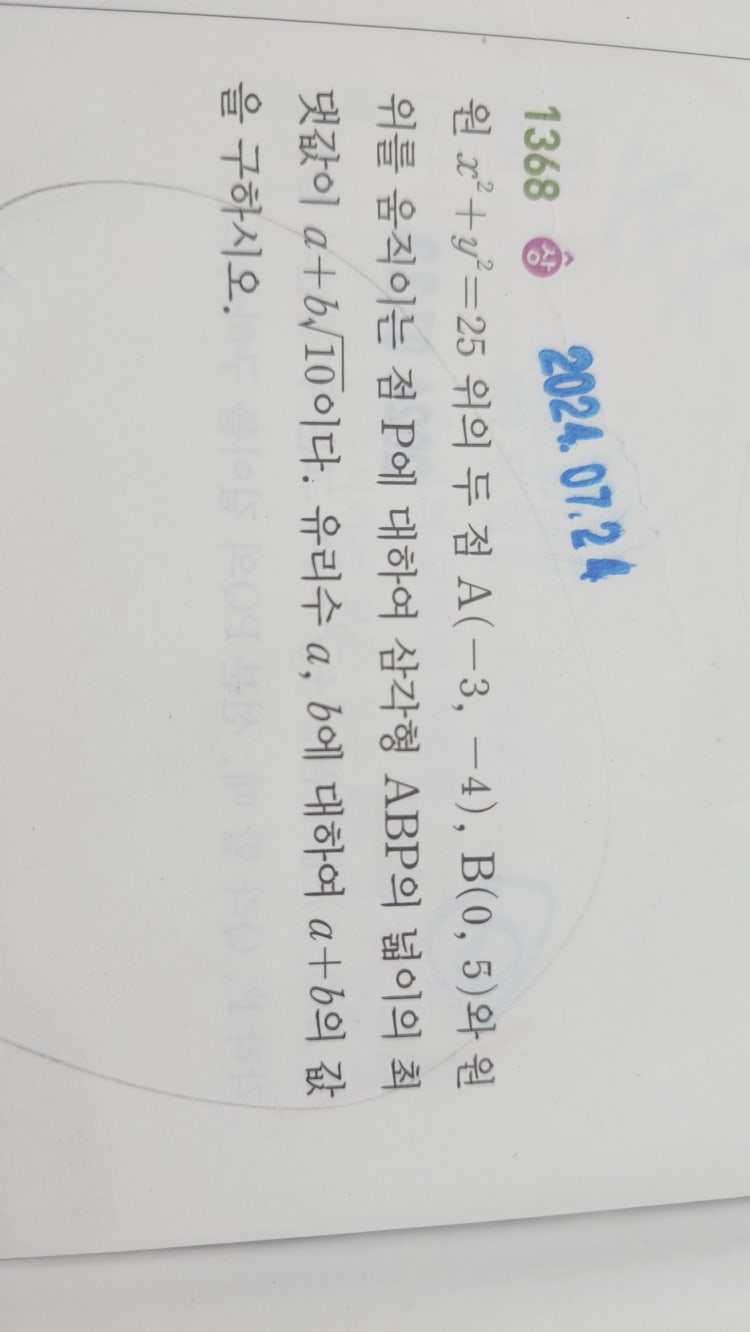 1368 상
2024. 07. 24
원 x²+y²=25 위의 두 점 A(−3, −4), B(0, 5)와 원
위를 움직이는 점 P에 대하여 삼각형 ABP의 넓이의 최
댓값이 a+b√10이다. 유리수 a, b에 대하여 a+b의 값
을 구하시오.